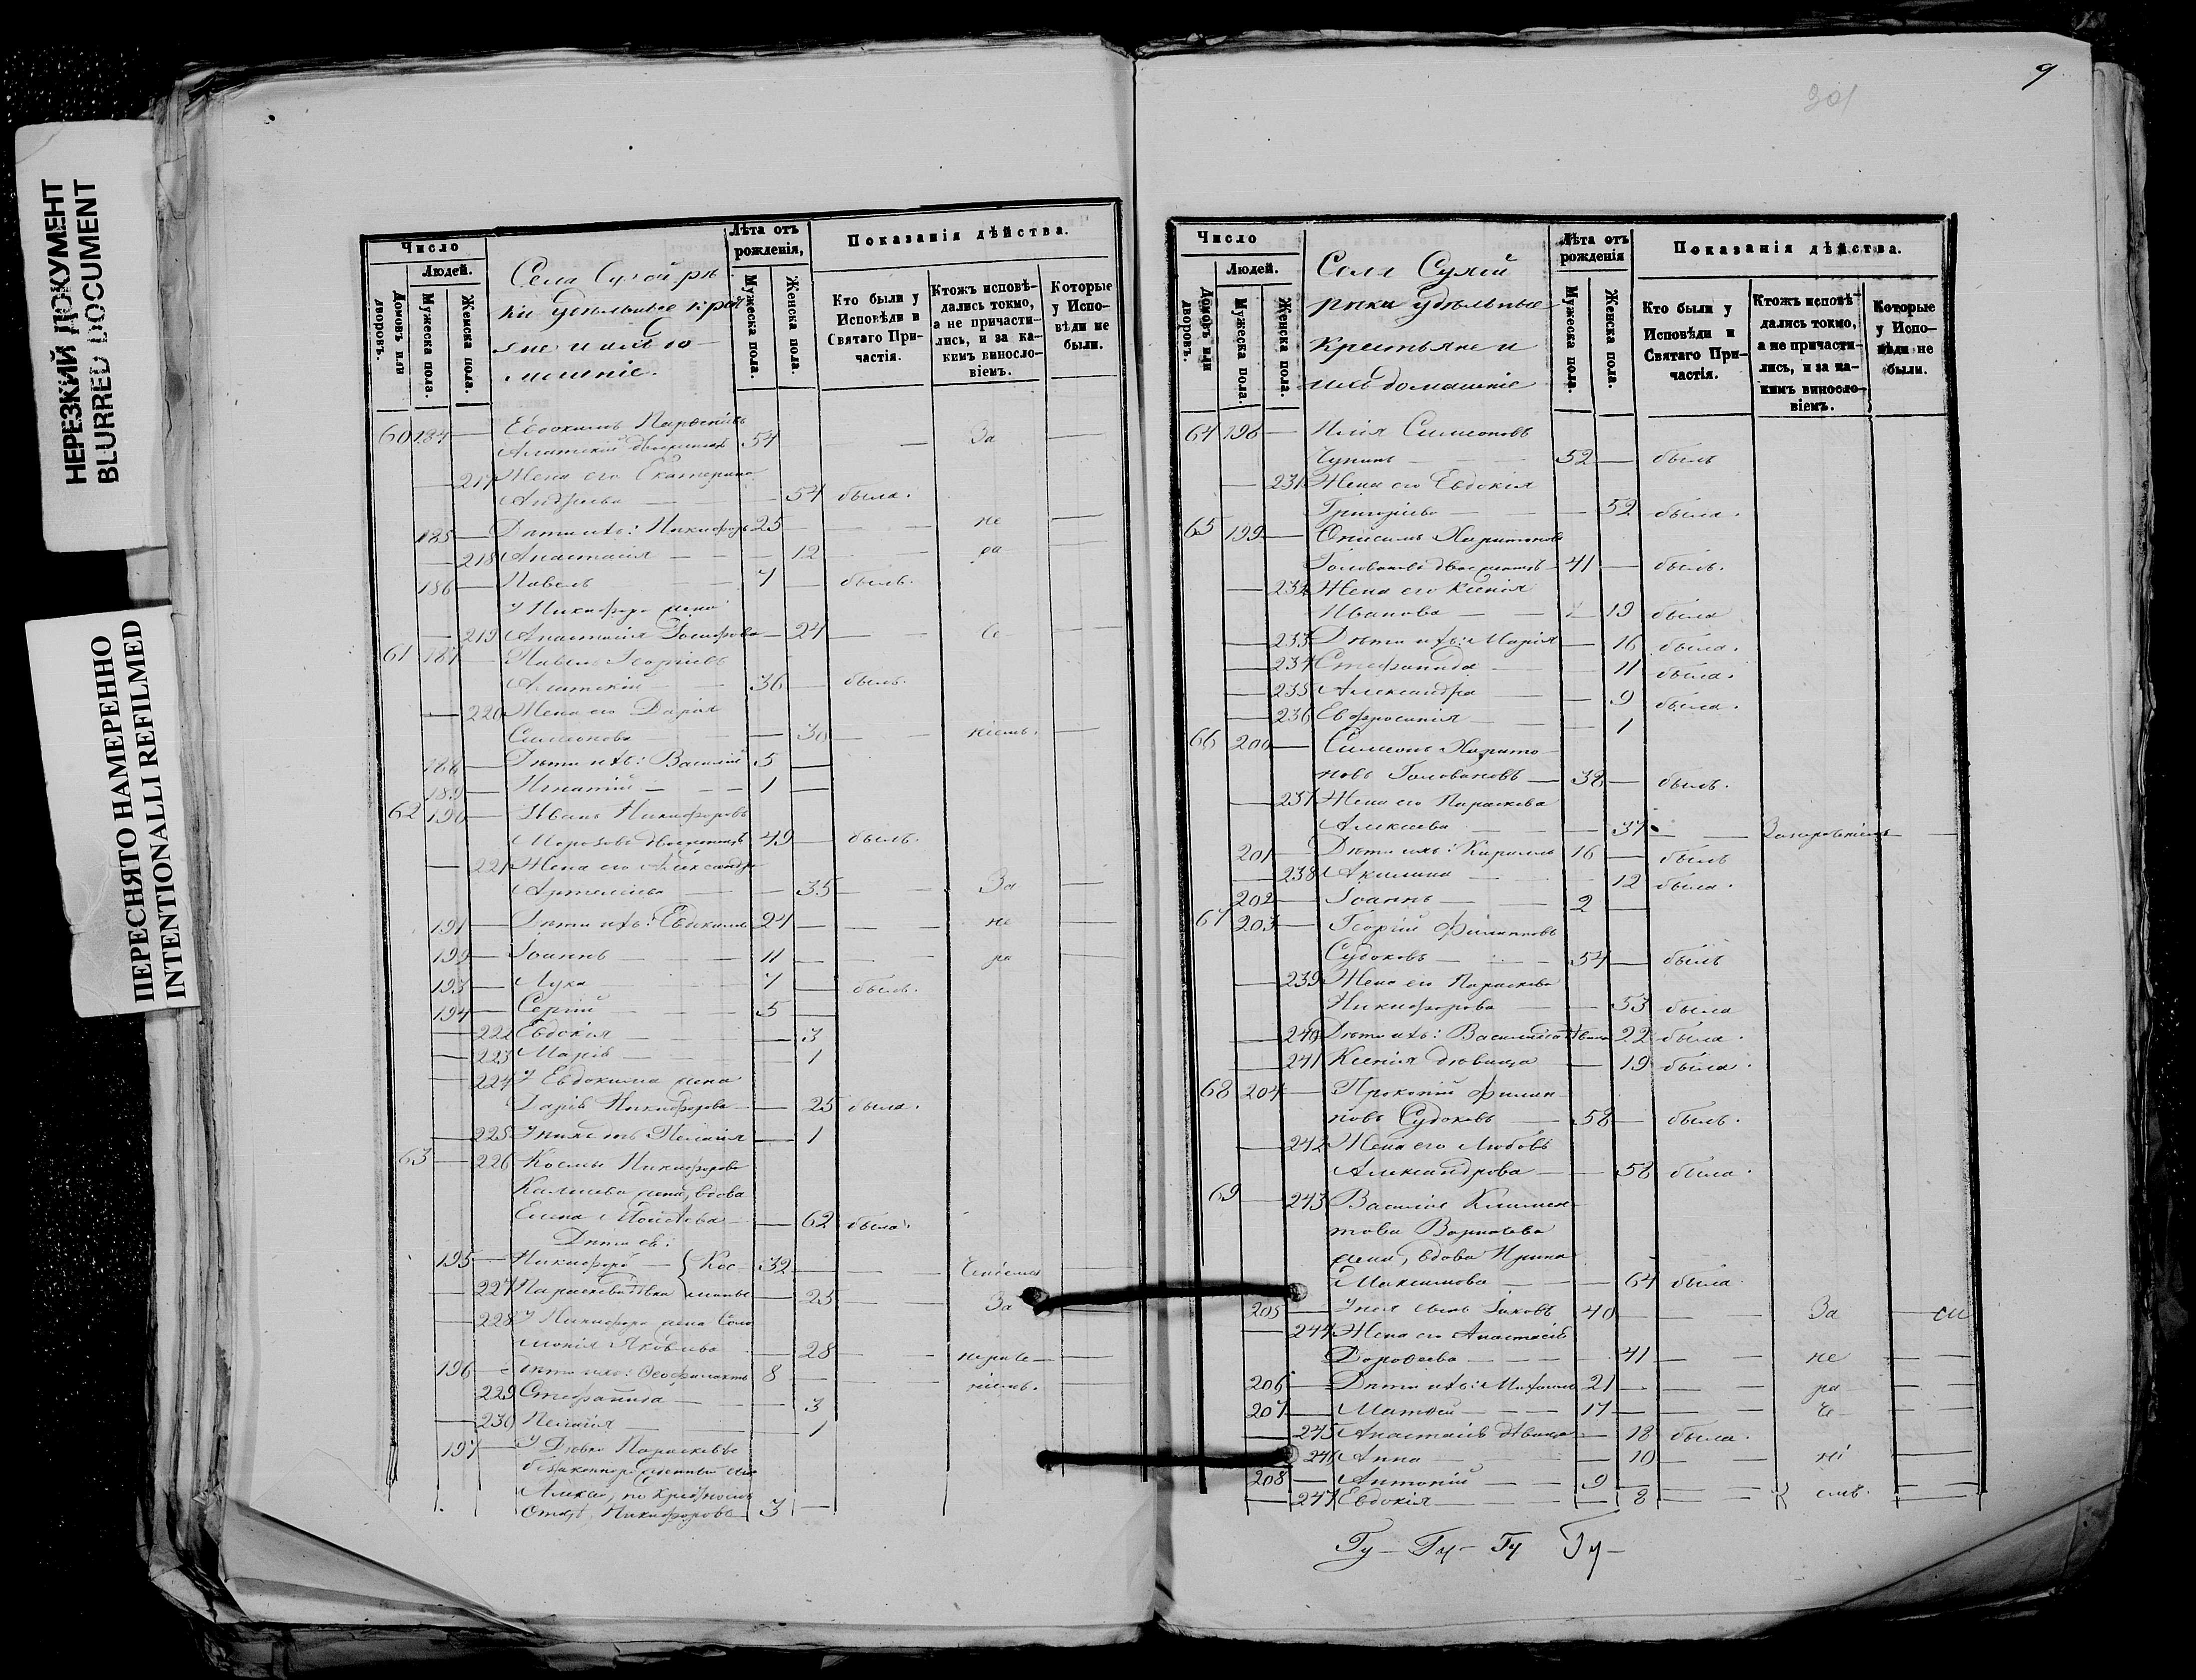 НЕРЕЗКИЙ ДОКУМЕНТ
BLURRED DOCUMENT
ПЕРЕСНЯТО НАМЕРЕННО
INTENTIONALLI REFILMED
Число
Людей.
Домовъ или дворовъ.
Мужеска пола.
Женска пола.
Села Сухой рѣ
ки удѣльные крес
яне и ихъ до-
машніе.
Лѣта отъ рожденія,
Мужеска пола.
Женска пола.
Показанія дѣйства.
Кто были у Исповѣди и Святаго Причастія.
Ктожъ исповѣдались токмо, а не причастились, и за какимъ винословіемъ.
Которые у Исповѣди не были.
60 184 — Евдокимъ
54 — — За —
— 217 Жена его Екатерина
Андреева — — 54 была.
185 — Дѣти ихъ: Никифоръ 25 — — не —
— 218 Анастасія — — — 12 — ра —
186 — Павелъ — 7 — былъ.
У Никифора жена
— 219 Анастасія — 24 — — че —
61 187 — Павелъ Георгіевъ
36 — былъ.
— 220 Жена его Дарія
Симеонова — — 30 — — ніемъ. —
188 — Дѣти ихъ: Василій 5 —
189 — Игнатій — — — 1 —
62 190 — Иванъ Никифоровъ
Морозовъ 49 — былъ.
— 221 Жена его Александра
— — 35 — — За —
191 — Дѣти ихъ: Евдокимъ 24 — — — не —
192 — Іоаннъ — — — 11 — — — ра —
193 — Лука 7 — былъ.
194 — Сергій — — — 5 —
— 222 Евдокія — — — 3
— 223 Марія — — — 1
— 224 У Евдокима жена
Дарія Никифорова — — 25 была.
— 225 У нихъ дочь Пелагія — 1
63 — 226 Космы Никифорова
жена, вдова
Елена — 62 была.
Дѣти ея:
195 — Никифоръ — 32 — — —
— 227 Параскева дѣвка — 25 — — За
— 228 У Никифора жена Соло
монія Яковлева — 28 — — нераче —
196 — Дѣти ихъ: Ѳеофилактъ 8 — — — ніемъ. —
— 229 Стефанида — — — 3
— 230 Пелагія — — 1
197 — У Дѣвки Параскевы
незаконнорожденный сынъ
Алексій, по крестному
отцу, Никифоровъ 3 —
9
301
Число
Людей.
Домовъ или дворовъ.
Мужеска пола.
Женска пола.
Села Сухой
рѣки удѣльные
крестьяне и
ихъ домашніе
Лѣта отъ рожденія
Мужеска пола.
Женска пола.
Показанія дѣйства.
Кто были у Исповѣди и Святаго Причастія.
Ктожъ исповѣдались токмо, а не причастились, и за какимъ винословіемъ.
Которые у Исповѣди не были.
64 198 — Илія Симеоновъ
Чупинъ — — — 52 — былъ
— 231 Жена его Евдокія
Григоріева — — — 52 была.
65 199 — Онисимъ Харитоновъ
Головановъ 41 — былъ.
— 232 Жена его Ксенія
Иванова — — 19 была
— 233 Дѣти ихъ: Марія — 16 была.
— 234 Стефанида — — 11 была.
— 235 Александра — — — 9 была.
— 236 Евфросинія — — 1
66 200 — Симеонъ Харито-
новъ Головановъ — 38 — былъ.
— 237 Жена его Параскева
Алексіева — — — 37 — — Занераченіемъ —
201 — Дѣти ихъ: Кириллъ 16 — былъ
— 238 Акилина — — — 12 была.
202 — Іоаннъ — — 2 —
67 203 — Георгій Филипповъ
Судоковъ — — 54 — былъ
— 239 Жена его Параскева
Никифорова — — 53 была
— 240 Дѣти ихъ: Василиса дѣвица 22 была.
— 241 Ксенія дѣвица — 19 была.
68 204 — Прокопій Филип-
повъ Судоковъ — 58 — былъ.
— 242 Жена его Любовь
Александрова — — 58 была.
69 — 243 Василія Климен-
това
жена, вдова Ирина
Максимова — — — 64 была.
205 — У нея сынъ Іаковъ 40 — — За —
— 244 Жена его Анастасія
Дороѳеева — — — 41 — — не —
206 — Дѣти ихъ: Михаилъ 21 — — ра —
207 — Матѳей — — — 17 — — — че —
— 245 Анастасія дѣвица — 18 была.
— 246 Анна — — — — 10 — — ні —
208 — Антоній — — 9 — — —
— 247 Евдокія — — — 8 — — емъ. —